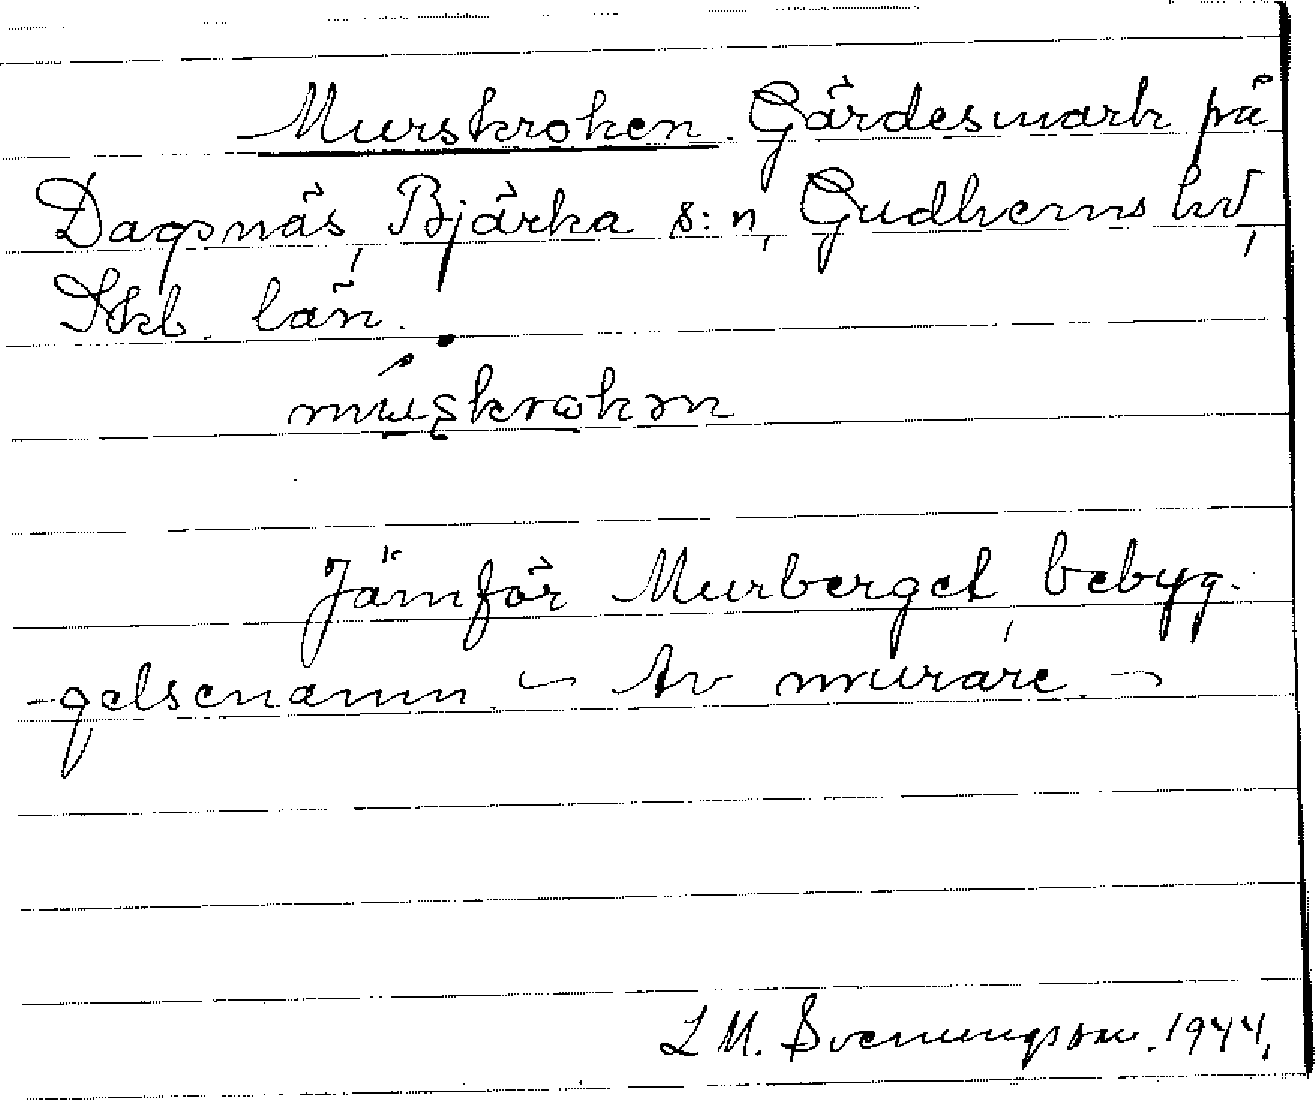 Murskroken. Gärdesmark på
Dagsnäs, Bjärka s:n, Gudhems hd,
Skb. län.
múʂkrokɘn
Jämför Murberget, bebyg-
gelsenamn. – Av murare. –
L M. Svenungsson. 1944.